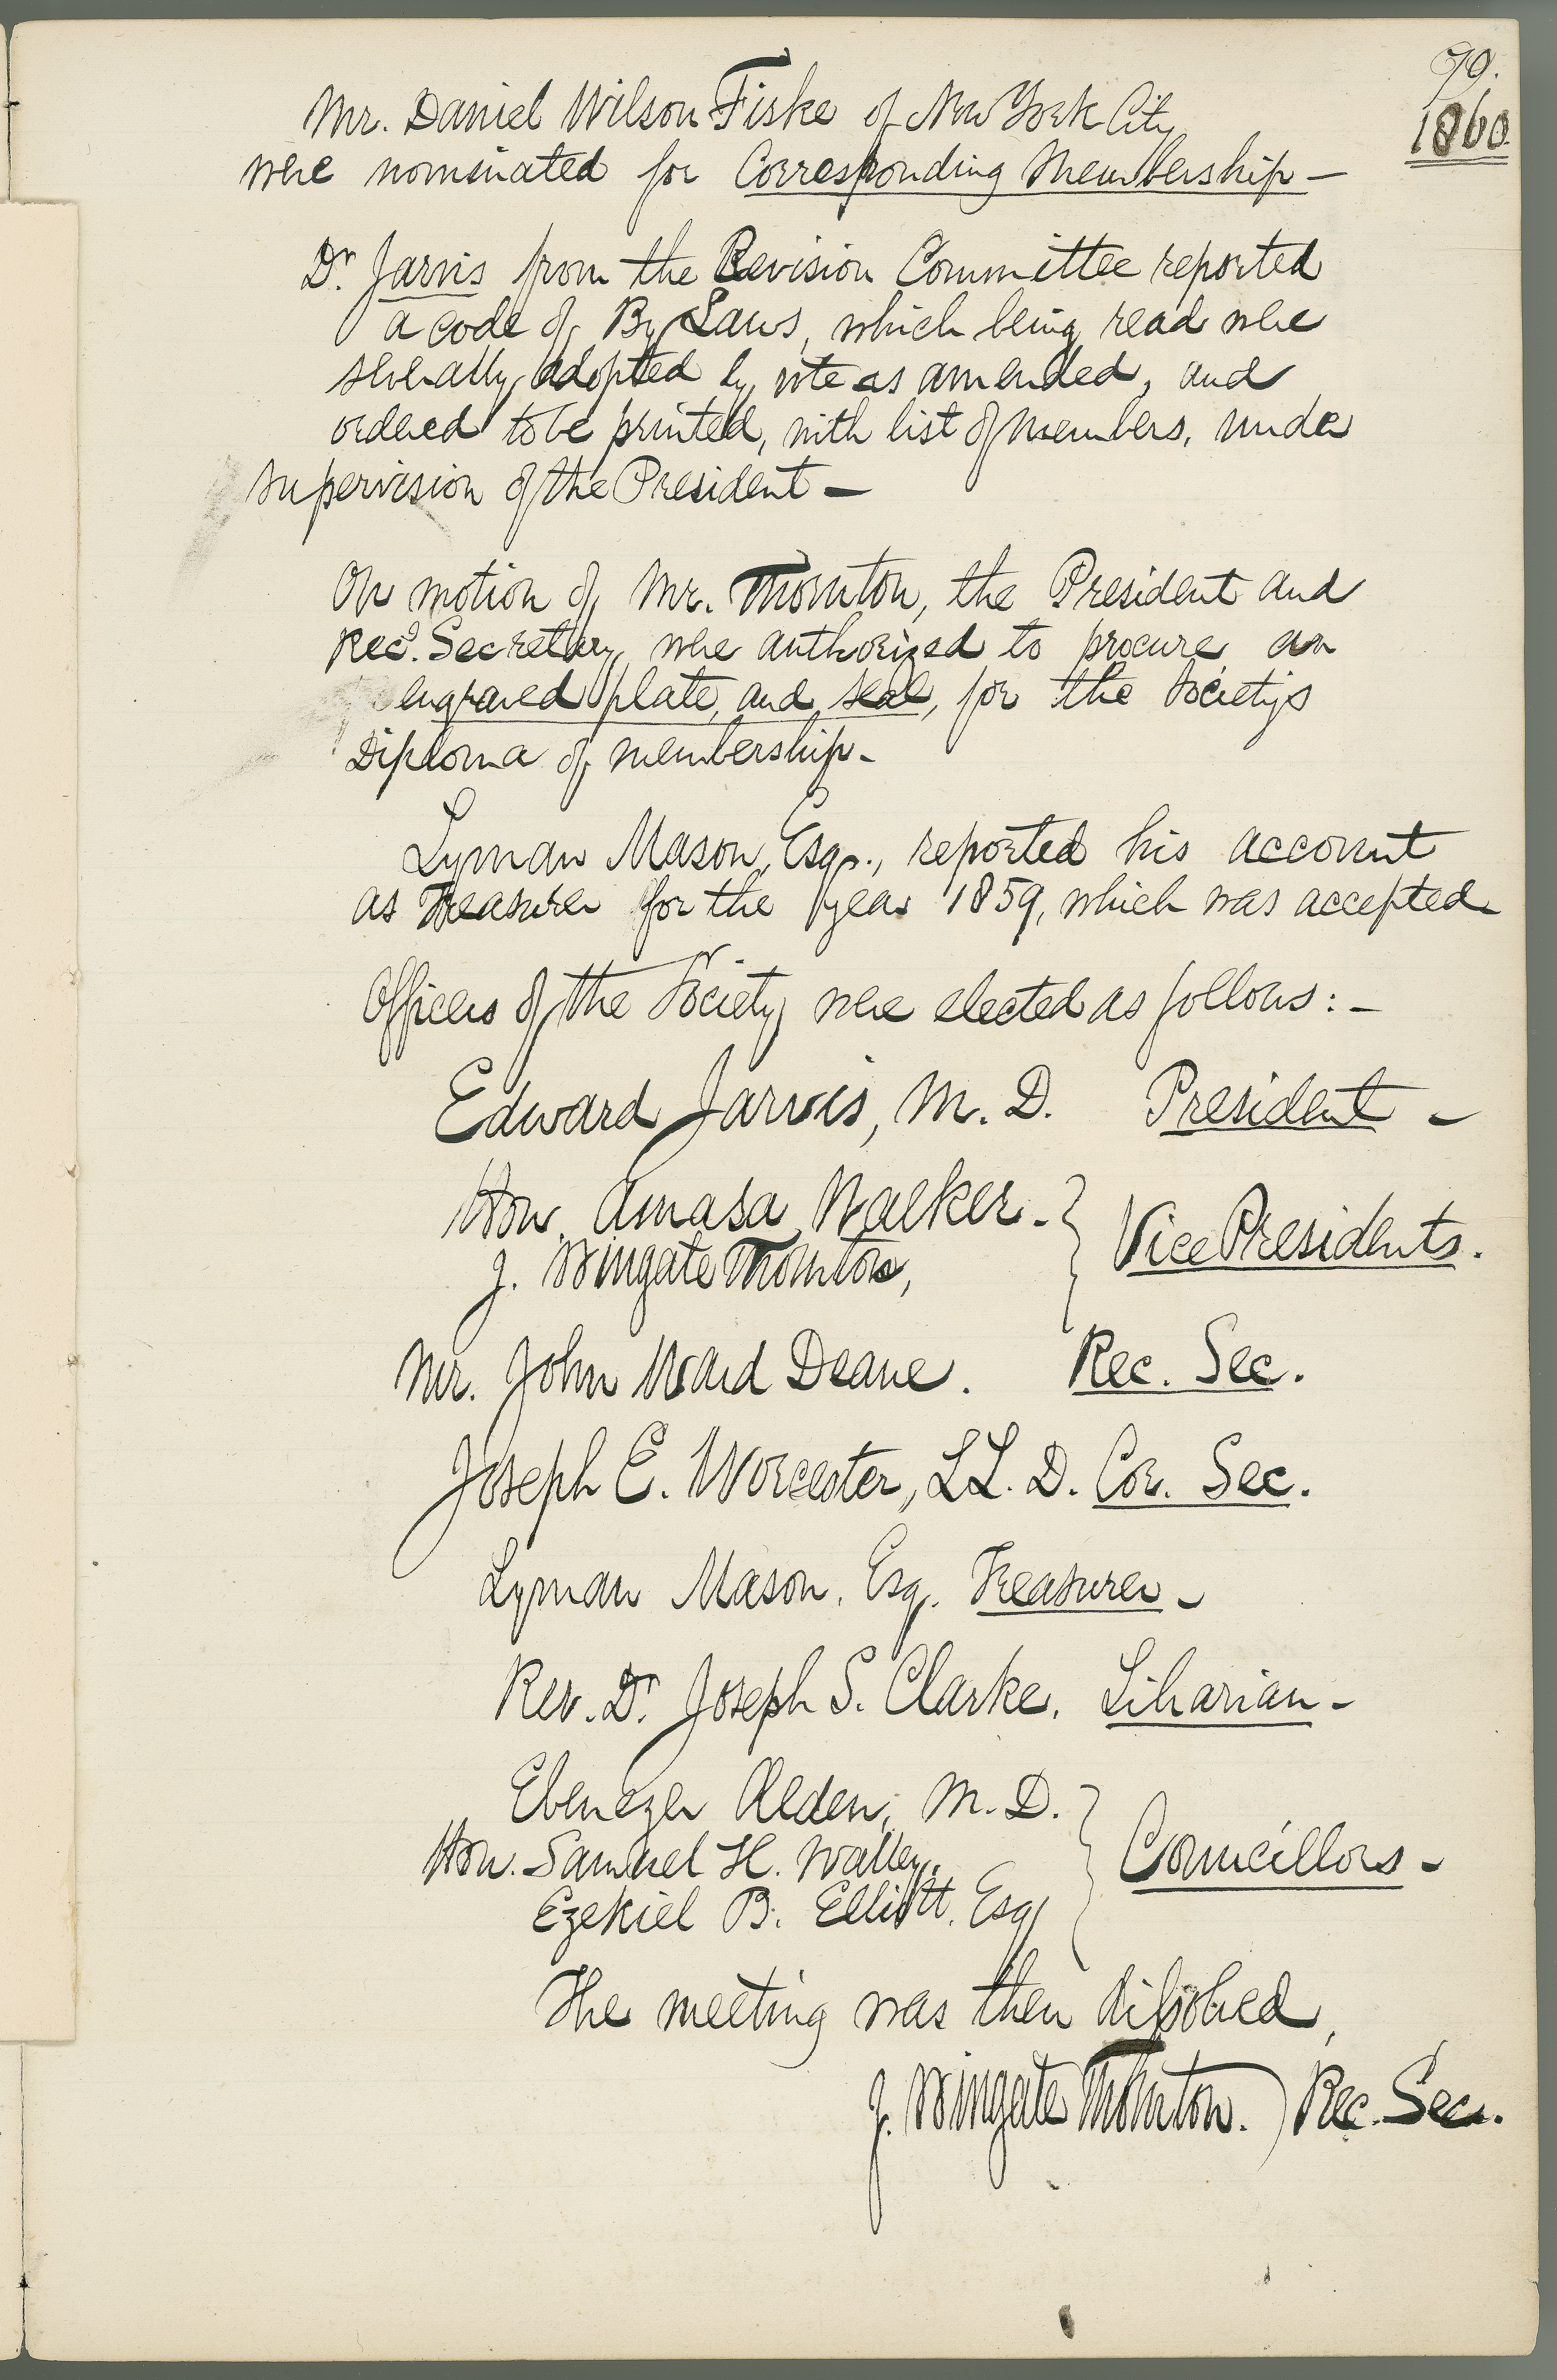 90.
1860
Mr. Daniel Wilson Fiske of New York City
were nominated for Corresponding Membership —
Dr. Jarvis from the Revision Committee reported
a code of By Laws, which being read were
severally adopted by vote as amended, and
ordered to be printed, with list of members, under
supervision of the President —
On motion of Mr. Thornton, the President and
Recg. Secretary were authorized to procure an
engraved plate, and seal, for the Society's
Diploma of membership. -
Lyman Mason, Esqr., reported his account
as Treasurer for the year 1859, which was accepted
Officers of the Society were elected as follows: -
Edward Jarvis, M. D. President -
Hon. Amasa Walker. -
J. Wingate Thornton, } Vice Presidents.
Mr. John Ward Deane. Rec. Sec.
Joseph E. Worcester, LL. D. Cor. Sec.
Lyman Mason, Esq. Treasurer -
Rev. Dr. Joseph S. Clarke. Librarian -
Ebenezer Alden, M. D.
Hon. Samuel H. Walley. } Councillors -
Ezekiel B. Elliott, Esq
The meeting was then dissolved,
J. Wingate Thornton. ) Rec. Sec.